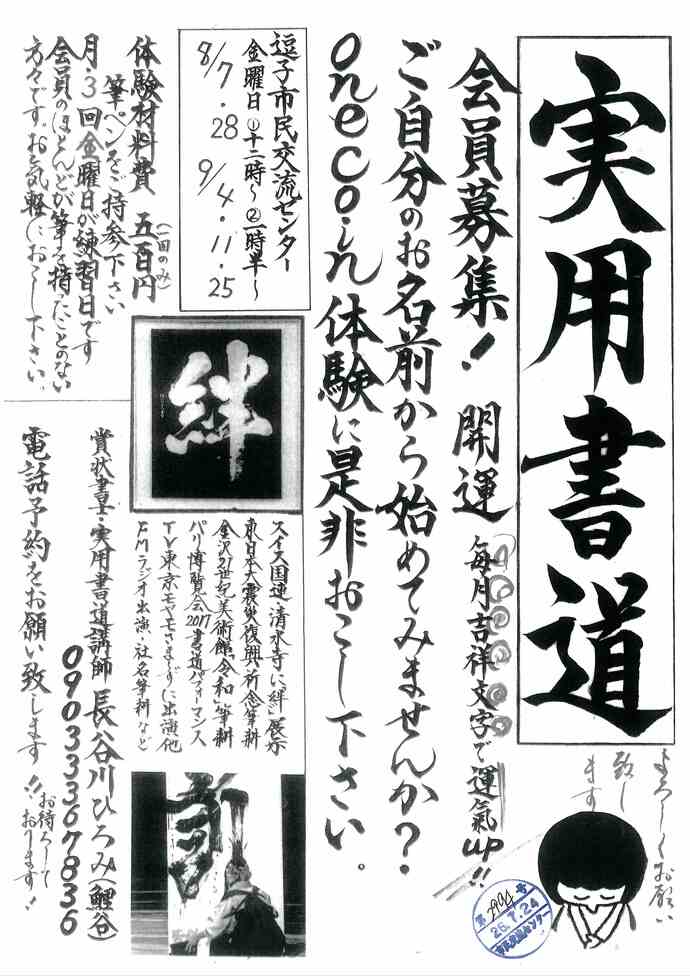 実用書道
よろしくお願い
致し
ます
会員募集! 開運 毎月吉祥文字で運氣up!!
ご自分のお名前から始めてみませんか?
onecoin体験に是非おこし下さい。
逗子市民交流センター
金曜日①十二時〜②一時半〜
8/7・28 9/4・11・25
体験材料費 五百円(一回のみ)
筆ペンをご持参下さい
月・3回金曜日が練習日です
会員のほとんどが筆を持ったことのない
方々です。お気軽におこし下さい。
絆
スイス国連・清水寺に「絆」展示
東日本大震災復興祈念筆耕
金沢21世紀美術館「令和」筆耕
パリ博覧会2017書道パフォーマンス
TV東京モヤモヤさまぁ〜ずに出演他
FMラジオ出演・社名筆耕など
賞状書士・実用書道講師 長谷川ひろみ(鯉谷)
09033367836
電話予約をお願い致します!!
お待ちして
おります!
26.7.24